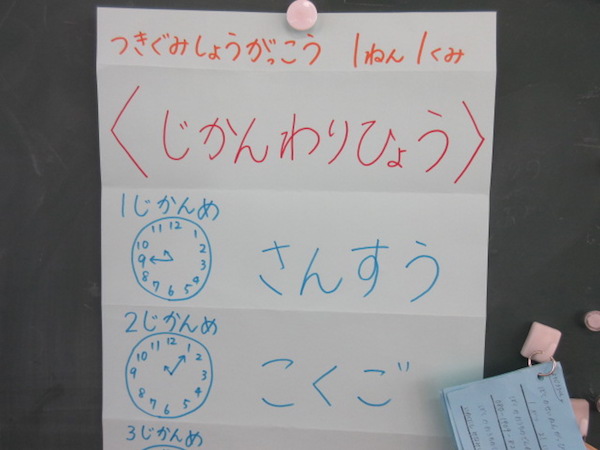 つきぐみしょうがっこう 1ねん1くみ
〈じかんわりひょう〉
1じかんめ
11 12 1
10 2
9 3
8 4
7 6 5
さんすう
2じかんめ
11 12 1
10 2
9 3
8 4
7 6 5
こくご
3じかんめ